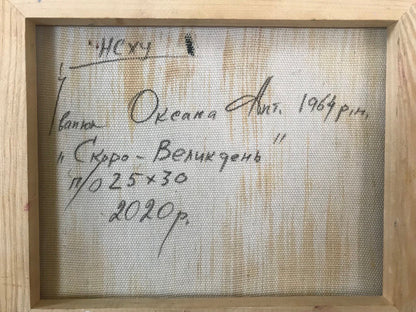 "НСХУ
Іванюк Оксана Ант. 1964 р.н.
"Скоро-Великдень"
п/о 25×30
2020р.